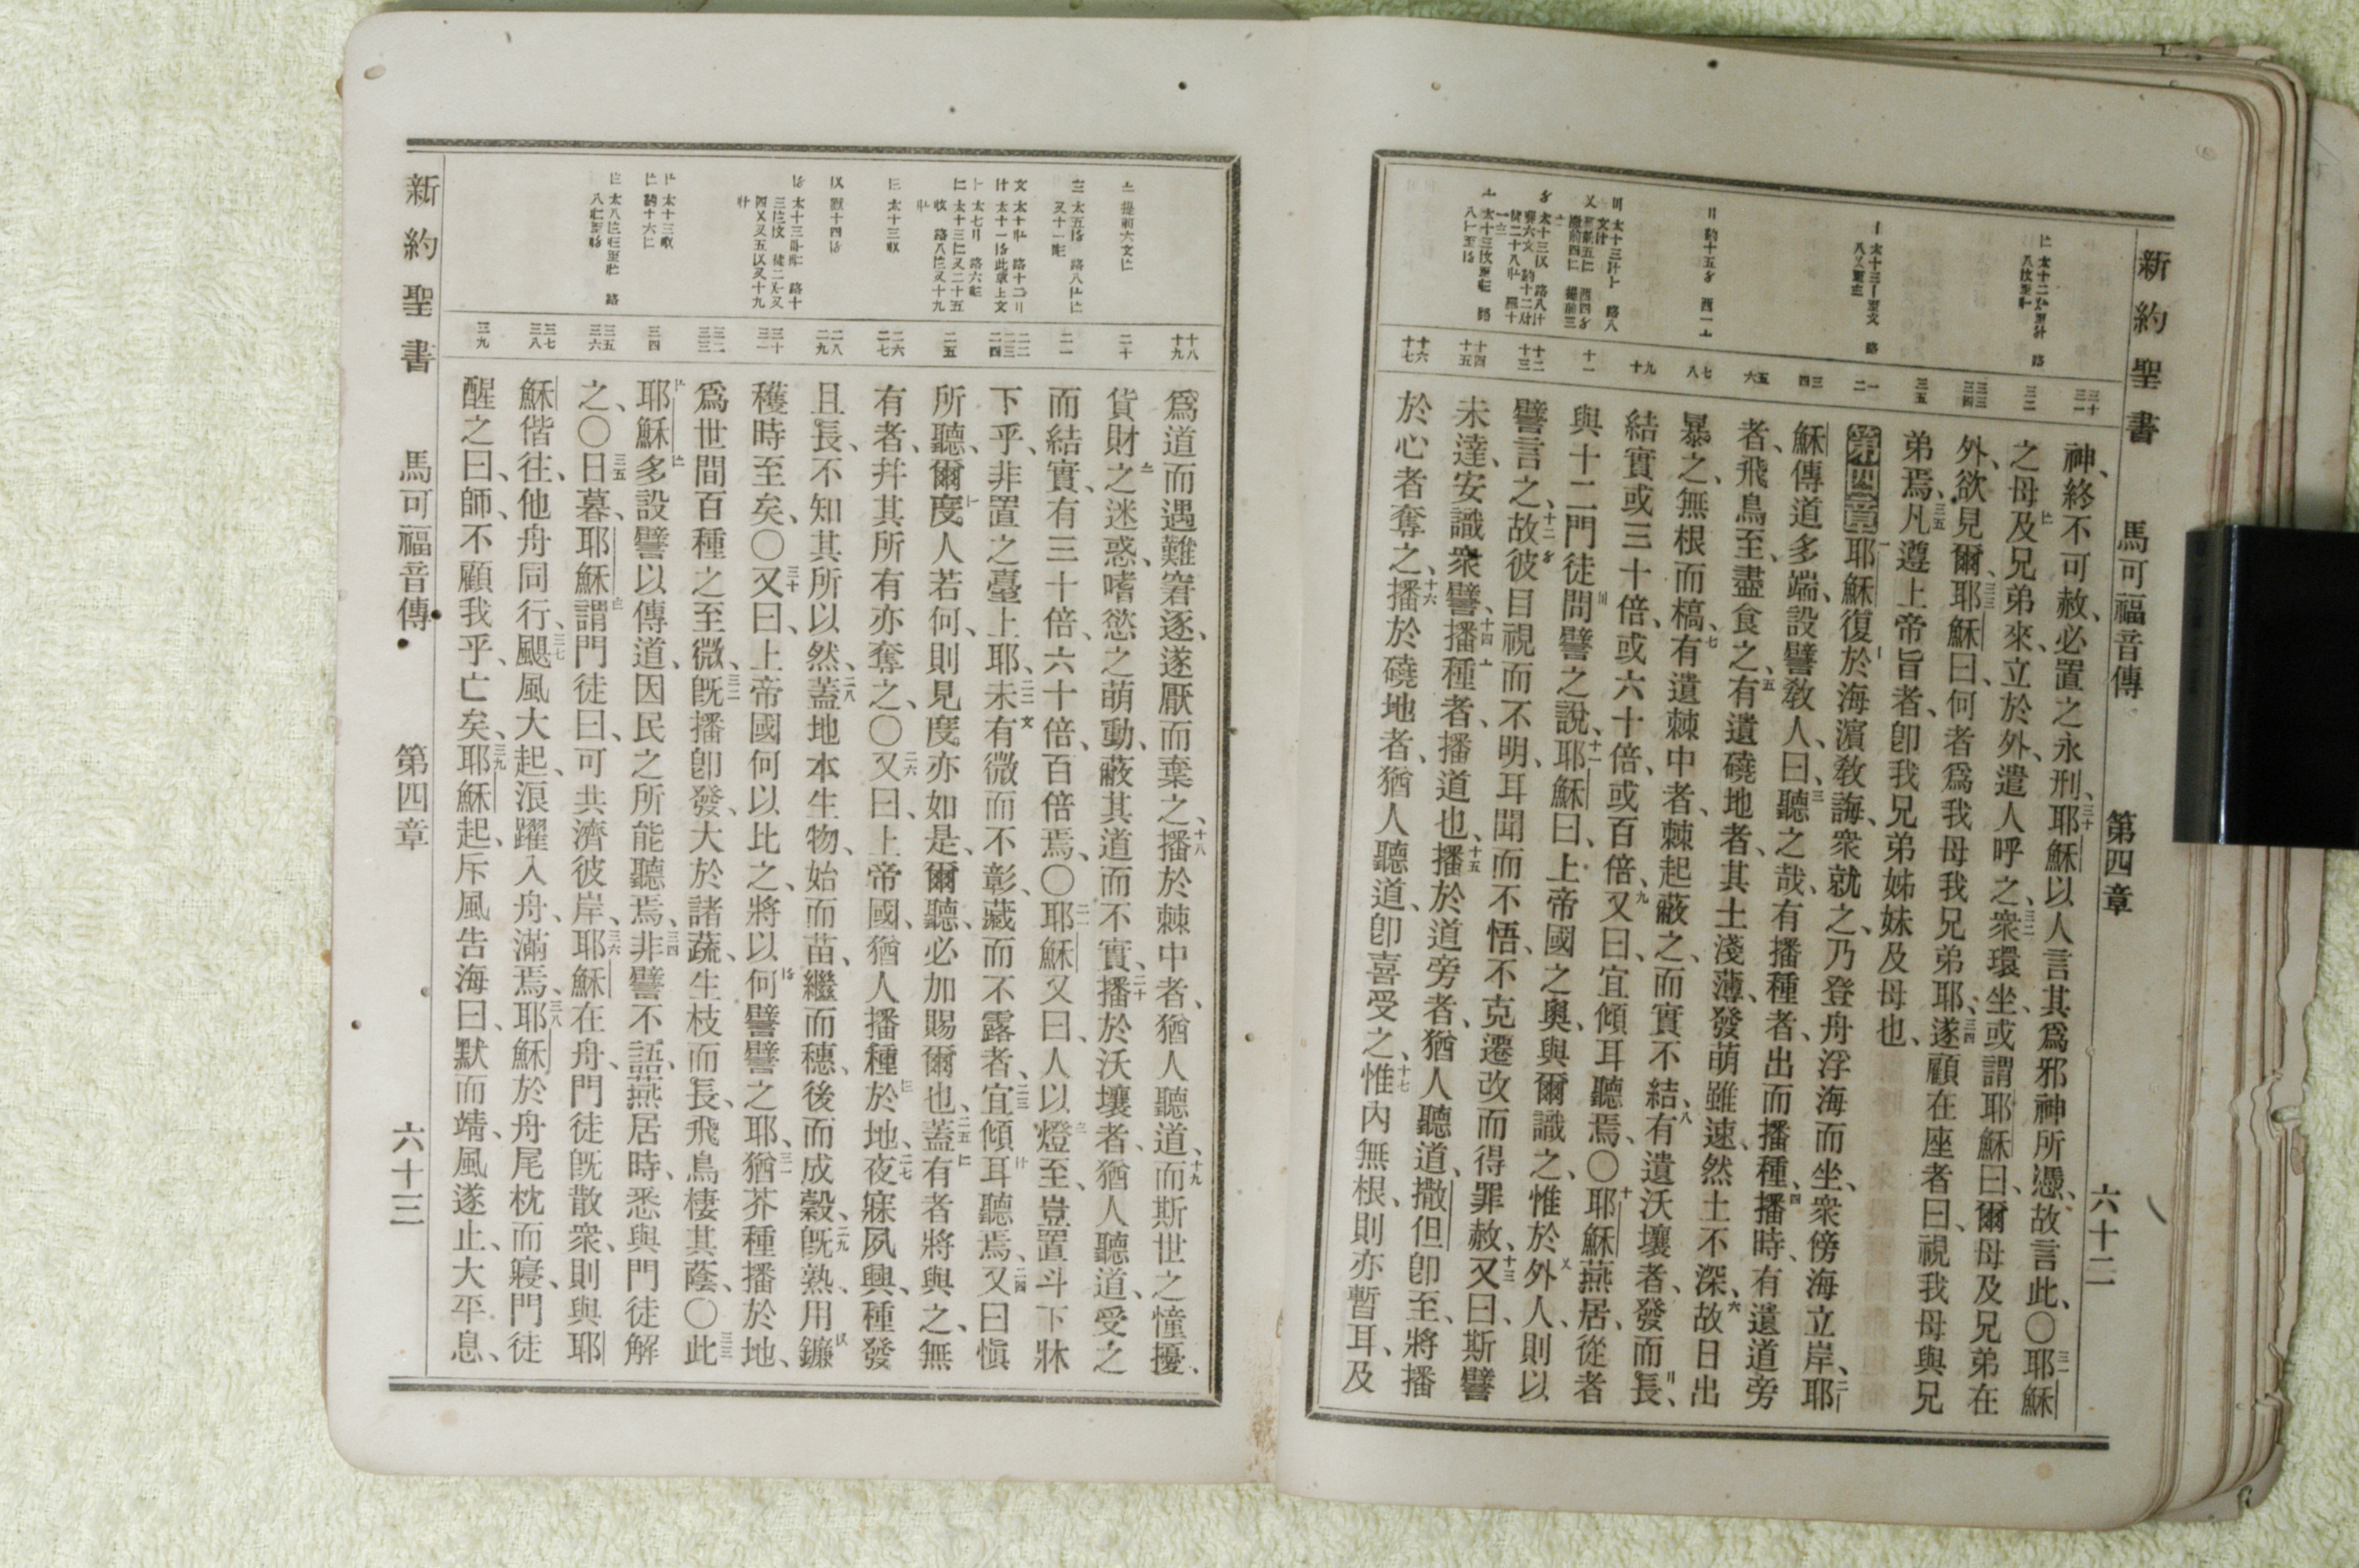 新約聖書 馬可福音傳 第四章 六十二
神、終不可赦、必置之永刑、三十耶穌以人言其爲邪神所憑、故言此、〇三一耶穌
之母及兄弟來、立於外、遣人呼之、三二衆環坐、或謂耶穌曰、爾母及兄弟在
外、欲見爾、三三耶穌曰、何者爲我母我兄弟耶、三四遂顧在座者曰、視我母與兄
弟焉、三五凡遵上帝旨者、卽我兄弟姊妹及母也、
第四章一耶穌復於海濱敎誨、衆就之、乃登舟浮海而坐、衆傍海立岸、二耶
穌傳道多端、設譬敎人、曰、三聽之哉、有播種者、出而播種、四播時、有遺道旁
者、飛鳥至、盡食之、五有遺磽地者、其土淺薄、發萌雖速、然土不深、六故日出
暴之、無根而槁、七有遺棘中者、棘起蔽之、而實不結、八有遺沃壤者、發而長、
結實或三十倍、或六十倍、或百倍、九又曰、宜傾耳聽焉、〇十耶穌燕居、從者
與十二門徒問譬之說、十一耶穌曰、上帝國之奧、與爾識之、惟於外人、則以
譬言之、十二故彼目視而不明、耳聞而不悟、不克遷改而得罪赦、十三又曰、斯譬
未達、安識衆譬、十四播種者、播道也、十五播於道旁者、猶人聽道、撒但卽至、將播
於心者奪之、十六播於磽地者、猶人聽道、卽喜受之、十七惟內無根、則亦暫耳、及
爲道而遇難窘逐、遂厭而棄之、十八播於棘中者、猶人聽道、十九而斯世之憧擾、
貨財之迷惑、嗜慾之萌動、蔽其道而不實、二十播於沃壤者、猶人聽道、受之
而結實、有三十倍、六十倍、百倍焉、〇二一耶穌又曰、人以燈至、豈置斗下牀
下乎、非置之臺上耶、二二未有微而不彰、藏而不露者、二三宜傾耳聽焉、二四又曰愼
所聽、爾度人若何、則見度亦如是、爾聽、必加賜爾也、二五蓋有者將與之、無
有者、幷其所有亦奪之、〇二六又曰、上帝國、猶人播種於地、二七夜寐夙興、種發
且長、不知其所以然、二八蓋地本生物、始而苗、繼而穗、後而成穀、二九旣熟、用鐮
穫時至矣、〇三十又曰、上帝國何以比之、將以何譬譬之耶、三一猶芥種播於地、
爲世間百種之至微、三二旣播卽發、大於諸蔬、生枝而長、飛鳥棲其蔭、〇三三此
耶穌多設譬以傳道、因民之所能聽焉、三四非譬不語、燕居時、悉與門徒解
之、〇三五日暮、耶穌謂門徒曰、可共濟彼岸、三六耶穌在舟、門徒旣散衆、則與耶
穌偕往、他舟同行、三七颶風大起、浪躍入舟、滿焉、三八耶穌於舟尾枕而寢、門徒
醒之曰、師、不顧我乎、亡矣、三九耶穌起、斥風告海曰、默而靖、風遂止、大平息、
新約聖書 馬可福音傳 第四章 六十三